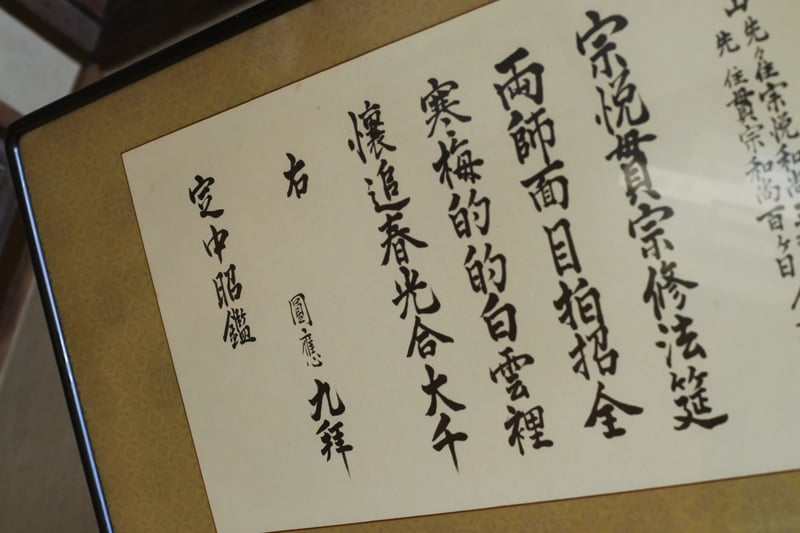 山先々住宗悦和尚
先住貫宗和尚百ヶ日
宗悦貫宗修法筵
両師面目拍招全
寒梅的的白雲裡
懐追春光合大千
右
圓應九拜
定中昭鑑